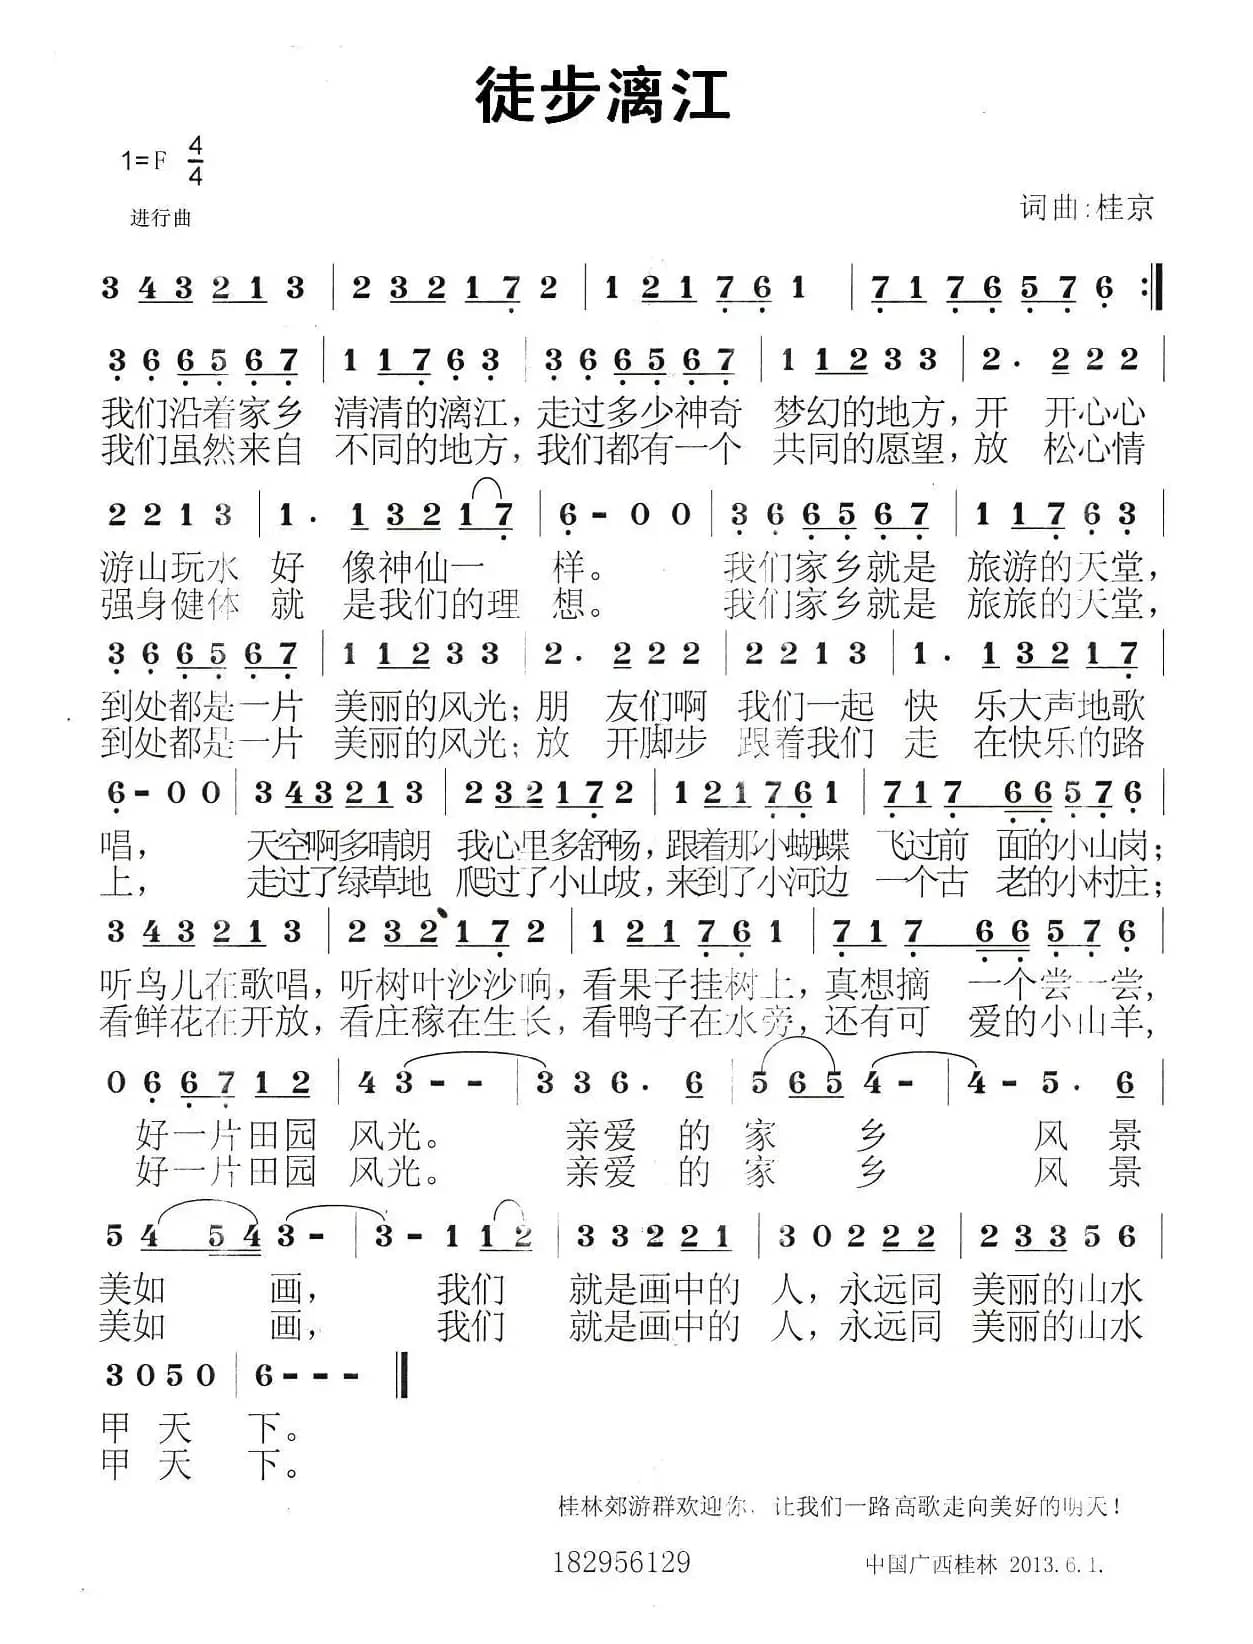 徒步漓江
1=F 4/4
进行曲
词曲:桂京
3 4 3 2 1 3 | 2 3 2 1 7 2 | 1 2 1 7 6 1 | 7 1 7 6 5 7 6 :|
3 6 6 5 6 7 | 1 1 7 6 3 | 3 6 6 5 6 7 | 1 1 2 3 3 | 2. 2 2 2 |
我们沿着家乡 清清的漓江，走过多少神奇 梦幻的地方，开 开心心
我们虽然来自 不同的地方，我们都有一个 共同的愿望，放 松心情
2 2 1 3 | 1. 1 3 2 1 7 | 6 - 0 0 | 3 6 6 5 6 7 | 1 1 7 6 3 |
游山玩水 好 像神仙一 样。 我们家乡就是 旅游的天堂，
强身健体 就 是我们的理 想。 我们家乡就是 旅旅的天堂，
3 6 6 5 6 7 | 1 1 2 3 3 | 2. 2 2 2 | 2 2 1 3 | 1. 1 3 2 1 7 |
到处都是一片 美丽的风光；朋 友们啊 我们一起 快 乐大声地歌
到处都是一片 美丽的风光；放 开脚步 跟着我们 走 在快乐的路
6 - 0 0 | 3 4 3 2 1 3 | 2 3 2 1 7 2 | 1 2 1 7 6 1 | 7 1 7 6 6 5 7 6 |
唱， 天空啊多晴朗 我心里多舒畅，跟着那小蝴蝶 飞过前 面的小山岗；
上， 走过了绿草地 爬过了小山坡，来到了小河边 一个古 老的小村庄；
3 4 3 2 1 3 | 2 3 2 1 7 2 | 1 2 1 7 6 1 | 7 1 7 6 6 5 7 6 |
听鸟儿在歌唱，听树叶沙沙响，看果子挂树上，真想摘 一个尝一尝，
看鲜花在开放，看庄稼在生长，看鸭子在水旁，还有可 爱的小山羊，
0 6 6 7 1 2 | 4 3 - - | 3 3 6. 6 | 5 6 5 4 - | 4 - 5. 6 |
好一片田园 风光。 亲爱 的 家 乡 风 景
好一片田园 风光。 亲爱 的 家 乡 风 景
5 4 5 4 3 - | 3 - 1 1 2 | 3 3 2 2 1 | 3 0 2 2 2 | 2 3 3 5 6 |
美如 画， 我们 就是画中的 人，永远同 美丽的山水
美如 画， 我们 就是画中的 人，永远同 美丽的山水
3 0 5 0 | 6 - - - ||
甲 天 下。
甲 天 下。
桂林郊游群欢迎你，让我们一路高歌走向美好的明天！
182956129
中国广西桂林 2013.6.1.